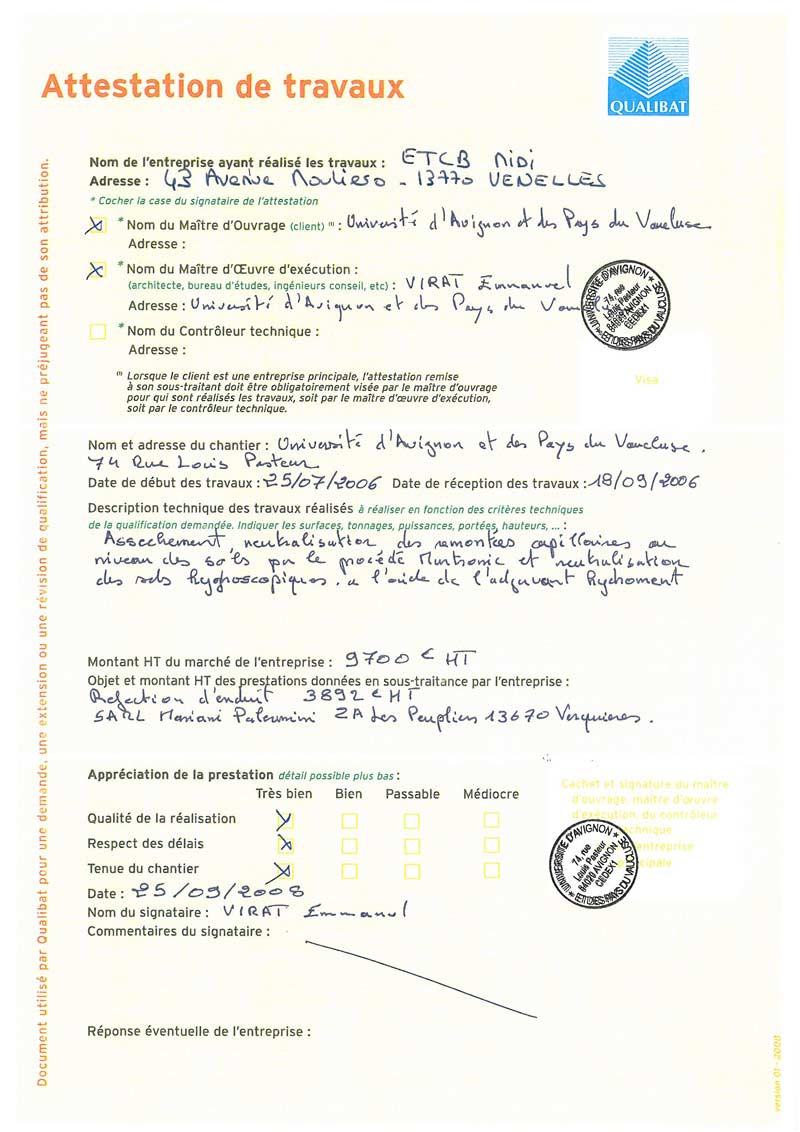 Attestation de travaux
QUALIBAT
Nom de l'entreprise ayant réalisé les travaux : ETCB MIDI
Adresse : 43 Avenue - 13770 VENELLES
* Cocher la case du signataire de l'attestation
* Nom du Maître d'Ouvrage (client) (1) : Université d'Avignon et des Pays du Vaucluse
Adresse :
* Nom du Maître d'Œuvre d'exécution :
(architecte, bureau d'études, ingénieurs conseil, etc) : VIRAT Emmanuel
Adresse : Université d'Avignon et des Pays du
* UNIVERSITE D'AVIGNON * ET DES PAYS DU VAUCLUSE
74, rue
Louis Pasteur
84029 AVIGNON
CEDEX1
* Nom du Contrôleur technique :
Adresse :
Visa
(1) Lorsque le client est une entreprise principale, l'attestation remise
à son sous-traitant doit être obligatoirement visée par le maître d'ouvrage
pour qui sont réalisés les travaux, soit par le maître d'œuvre d'exécution,
soit par le contrôleur technique.
Nom et adresse du chantier : Université d'Avignon et des Pays du Vaucluse.
74 Rue Louis Pasteur
Date de début des travaux : 25/07/2006 Date de réception des travaux : 18/09/2006
Description technique des travaux réalisés à réaliser en fonction des critères techniques
de la qualification demandée. Indiquer les surfaces, tonnages, puissances, portées, hauteurs, ... :
Assechement, neutralisation des remontées capillaires au
niveau des sols par le procédé Murtronic et neutralisation
des sels hygroscopiques. a l'aide de l'adjuvant
Montant HT du marché de l'entreprise : 9700 € HT
Objet et montant HT des prestations données en sous-traitance par l'entreprise :
Refection d'enduit 3892 € HT
SARL Mariani ZA Les Peupliers 13670 Verquieres.
Appréciation de la prestation détail possible plus bas :
Très bien Bien Passable Médiocre
Qualité de la réalisation
Respect des délais
Tenue du chantier
Cachet et signature du maître
d'ouvrage, maître d'œuvre
d'exécution, du contrôleur
technique
entreprise
principale
* UNIVERSITE D'AVIGNON * ET DES PAYS DU VAUCLUSE
74, rue
Louis Pasteur
84029 AVIGNON
CEDEX1
Date : 25/09/2008
Nom du signataire : VIRAT Emmanuel
Commentaires du signataire :
Réponse éventuelle de l'entreprise :
Document utilisé par Qualibat pour une demande, une extension ou une révision de qualification, mais ne préjugeant pas de son attribution.
version 01 - 2008